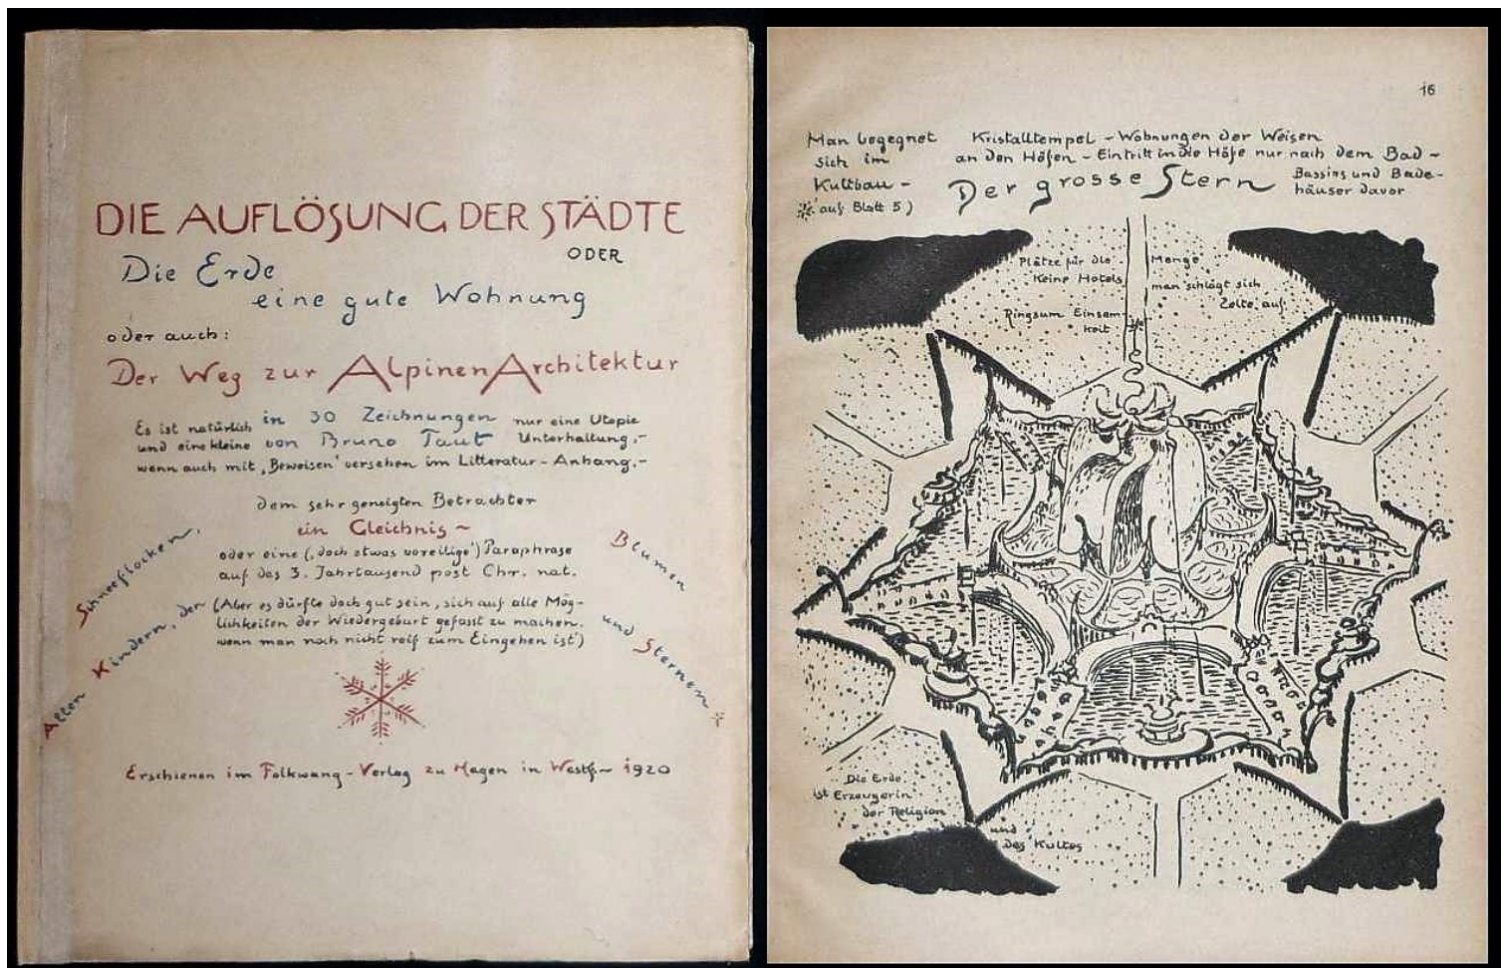 DIE AUFLÖSUNG DER STÄDTE
ODER
Die Erde
eine gute Wohnung
oder auch:
Der Weg zur Alpinen Architektur
Es ist natürlich in 30 Zeichnungen nur eine Utopie
und eine kleine von Bruno Taut Unterhaltung,-
wenn auch mit ‚Beweisen' versehen im Litteratur-Anhang.-
dem sehr geneigten Betrachter
ein Gleichnis ~
oder eine (‚doch etwas voreilige') Paraphrase
auf das 3. Jahrtausend post Chr. nat.
(Aber es dürfte doch gut sein, sich auf alle Mög-
lichkeiten der Wiedergeburt gefasst zu machen.
wenn man noch nicht reif zum Eingehen ist')
Allen Kindern, der
Schneeflocken,
Blumen
und Sternen
Erschienen im Folkwang-Verlag zu Hagen in Westf~ 1920
16
Man begegnet
sich im
Kultbau -
auf Blatt 5)
Kristalltempel - Wohnungen der Weisen
an den Höfen - Eintritt in die Höfe nur nach dem Bad -
Der grosse Stern
Bassins und Bade-
häuser davor
Plätze für die Menge
Keine Hotels man schlägt sich
Zelte auf
Ringsum Einsam-
keit
Die Erde
ist Erzeugerin
der Religion
und
des Kultes